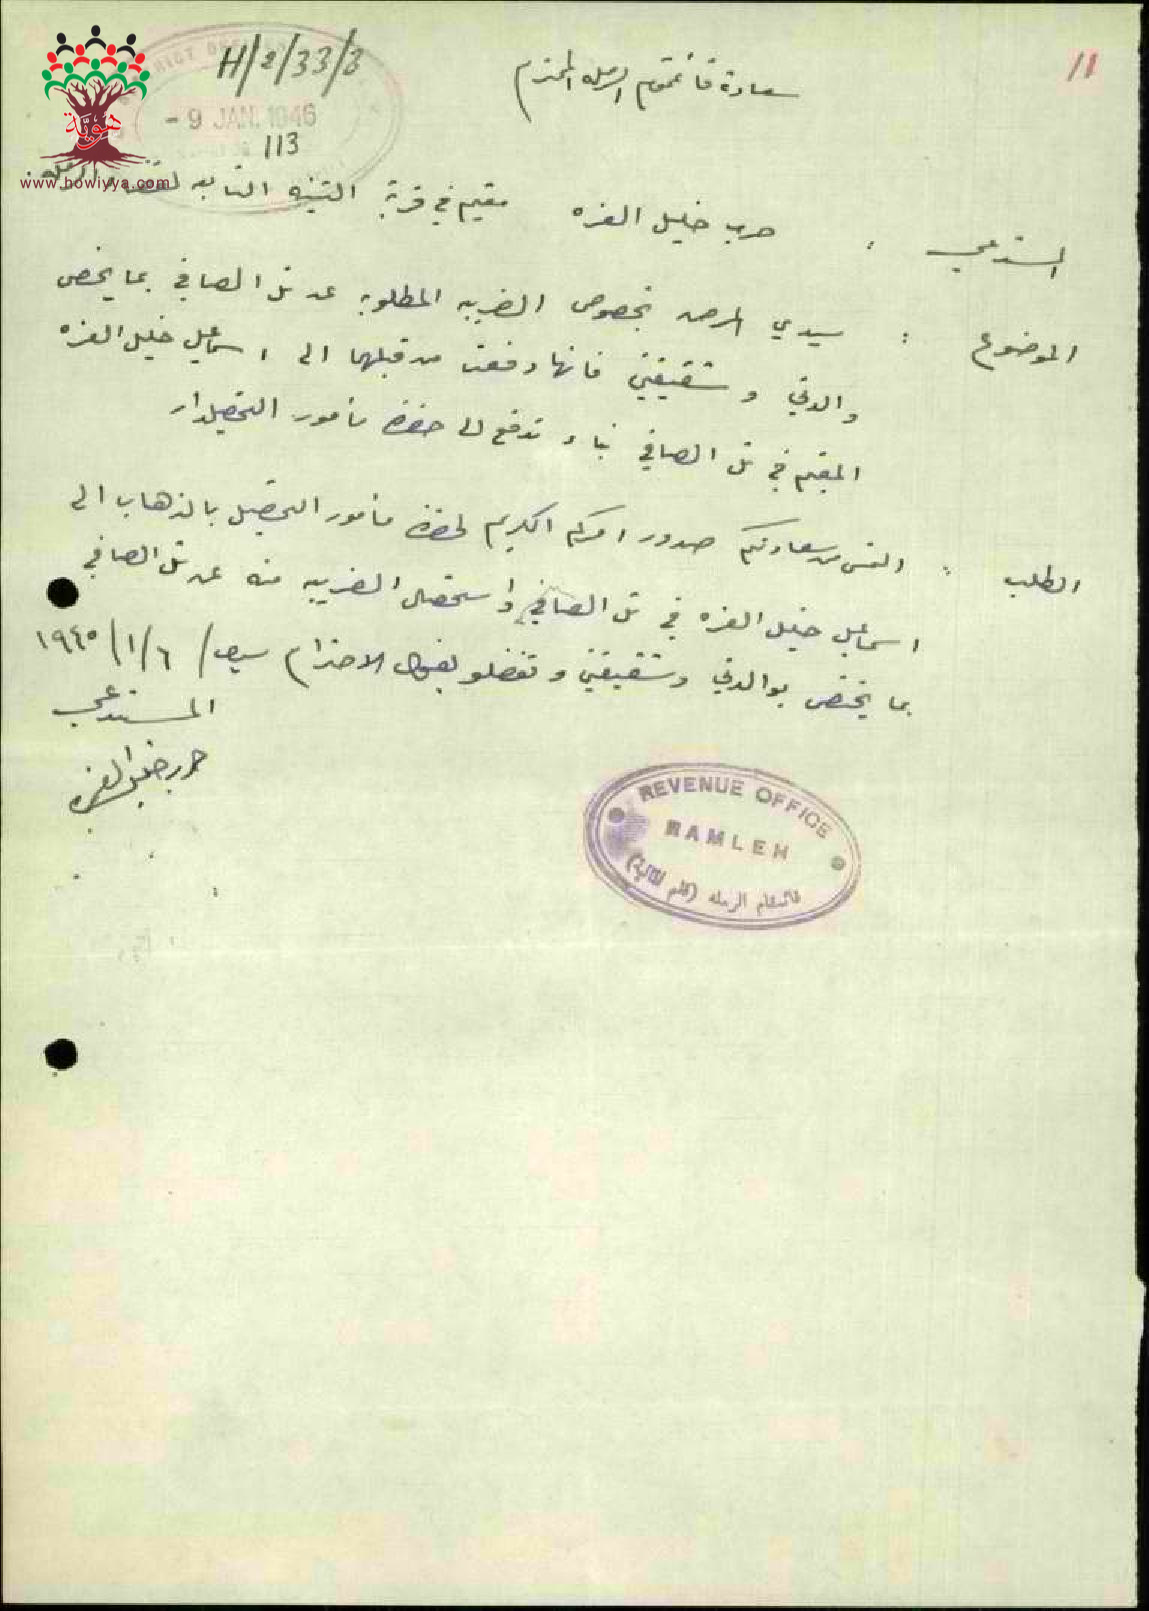 H/2/33/3
11
سعادة قائمقام الرملة المحترم
- 9 JAN. 1946
113
هوية
www.howiyya.com
المستدعي : حرب خليل الغزه مقيم في قرية التينه التابعه لقضاء الرمله.
الموضوع : سيدي اعرض بخصوص الضريبه المطلوبه عن تل الصافي بما يخص
والدتي و شقيقتي فانها دفعت من قبلهما الى اسماعيل خليل الغزه
المقيم في تل الصافي تدفع الى حضرة مأمور التحصيلدار
الطلب : التمس من سعادتكم صدور امركم الكريم لحضرة مأمور التحصيل بالذهاب الى
اسماعيل خليل الغزه في تل الصافي واستحصال الضريبه منه عن تل الصافي
بما يختص بوالدتي وشقيقتي وتفضلو بقبول الاحترام سيدي / ٦/١/١٩٤٥
المستدعي
حرب خليل الغزه
REVENUE OFFICE
RAMLEH
قائمقام الرمله (قلم المالية)